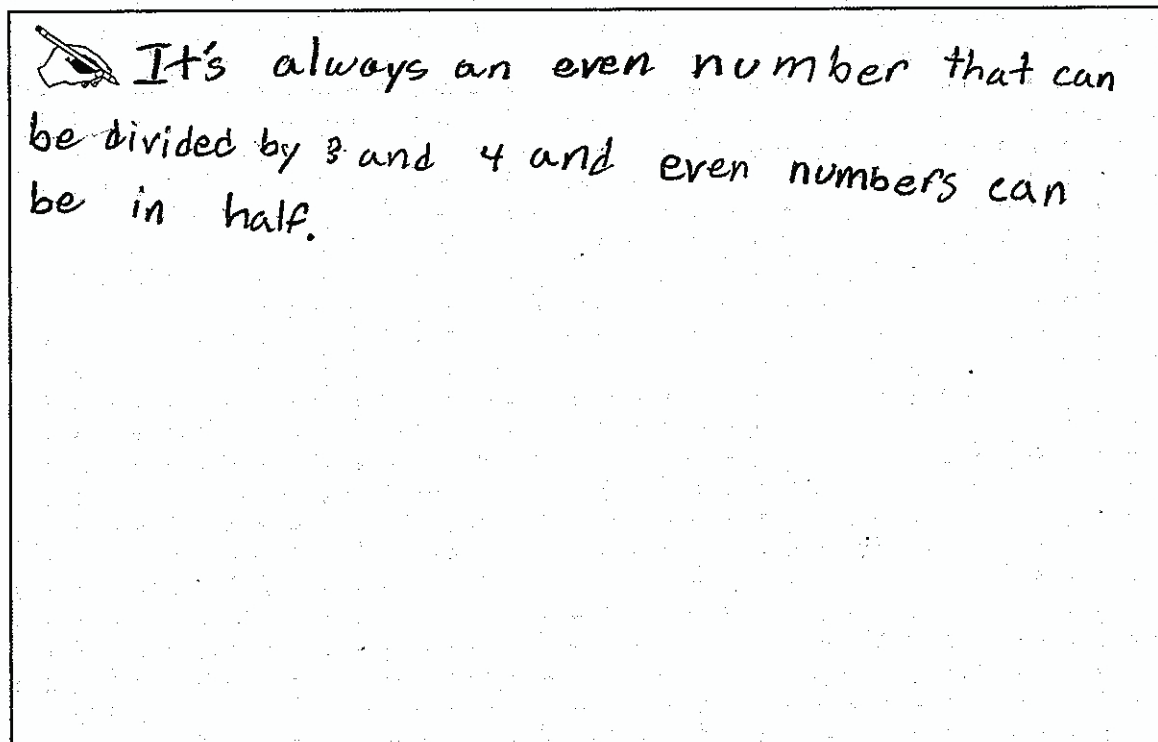 It's always an even number that can
be divided by 3 and 4 and even numbers can
be in half.